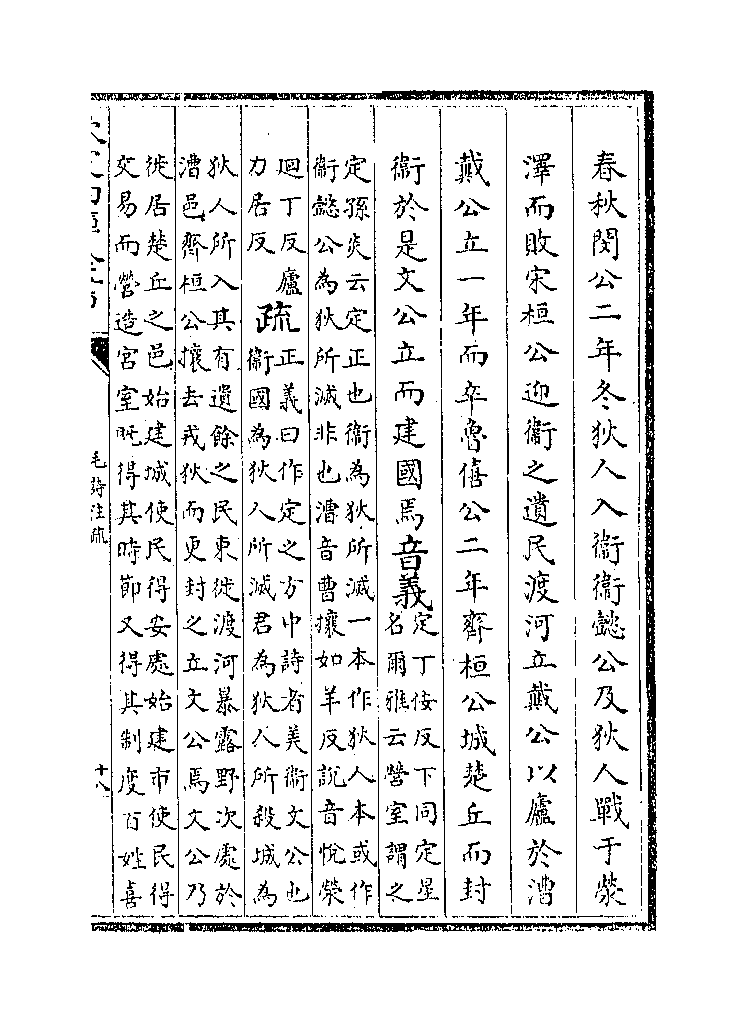 春秋閔公二年冬狄人入衞衞懿公及狄人戰于滎
澤而敗宋桓公迎衞之遺民渡河立戴公以廬於漕
戴公立一年而卒魯僖公二年齊桓公城楚丘而封
衞於是文公立而建國焉音義
定丁佞反下同定星
名爾雅云營室謂之
定孫炎云定正也衞為狄所滅一本作狄人本或作
衞懿公為狄所滅非也漕音曹攘如羊反說音悅滎
迴丁反廬
力居反
疏
正義曰作定之方中詩者美衞文公也
衞國為狄人所滅君為狄人所殺城為
狄人所入其有遺餘之民東徙渡河暴露野次處於
漕邑齊桓公攘去戎狄而更封之立文公焉文公乃
徙居楚丘之邑始建城使民得安處始建市使民得
交易而營造宮室旣得其時節又得其制度百姓喜
毛詩注疏
十八